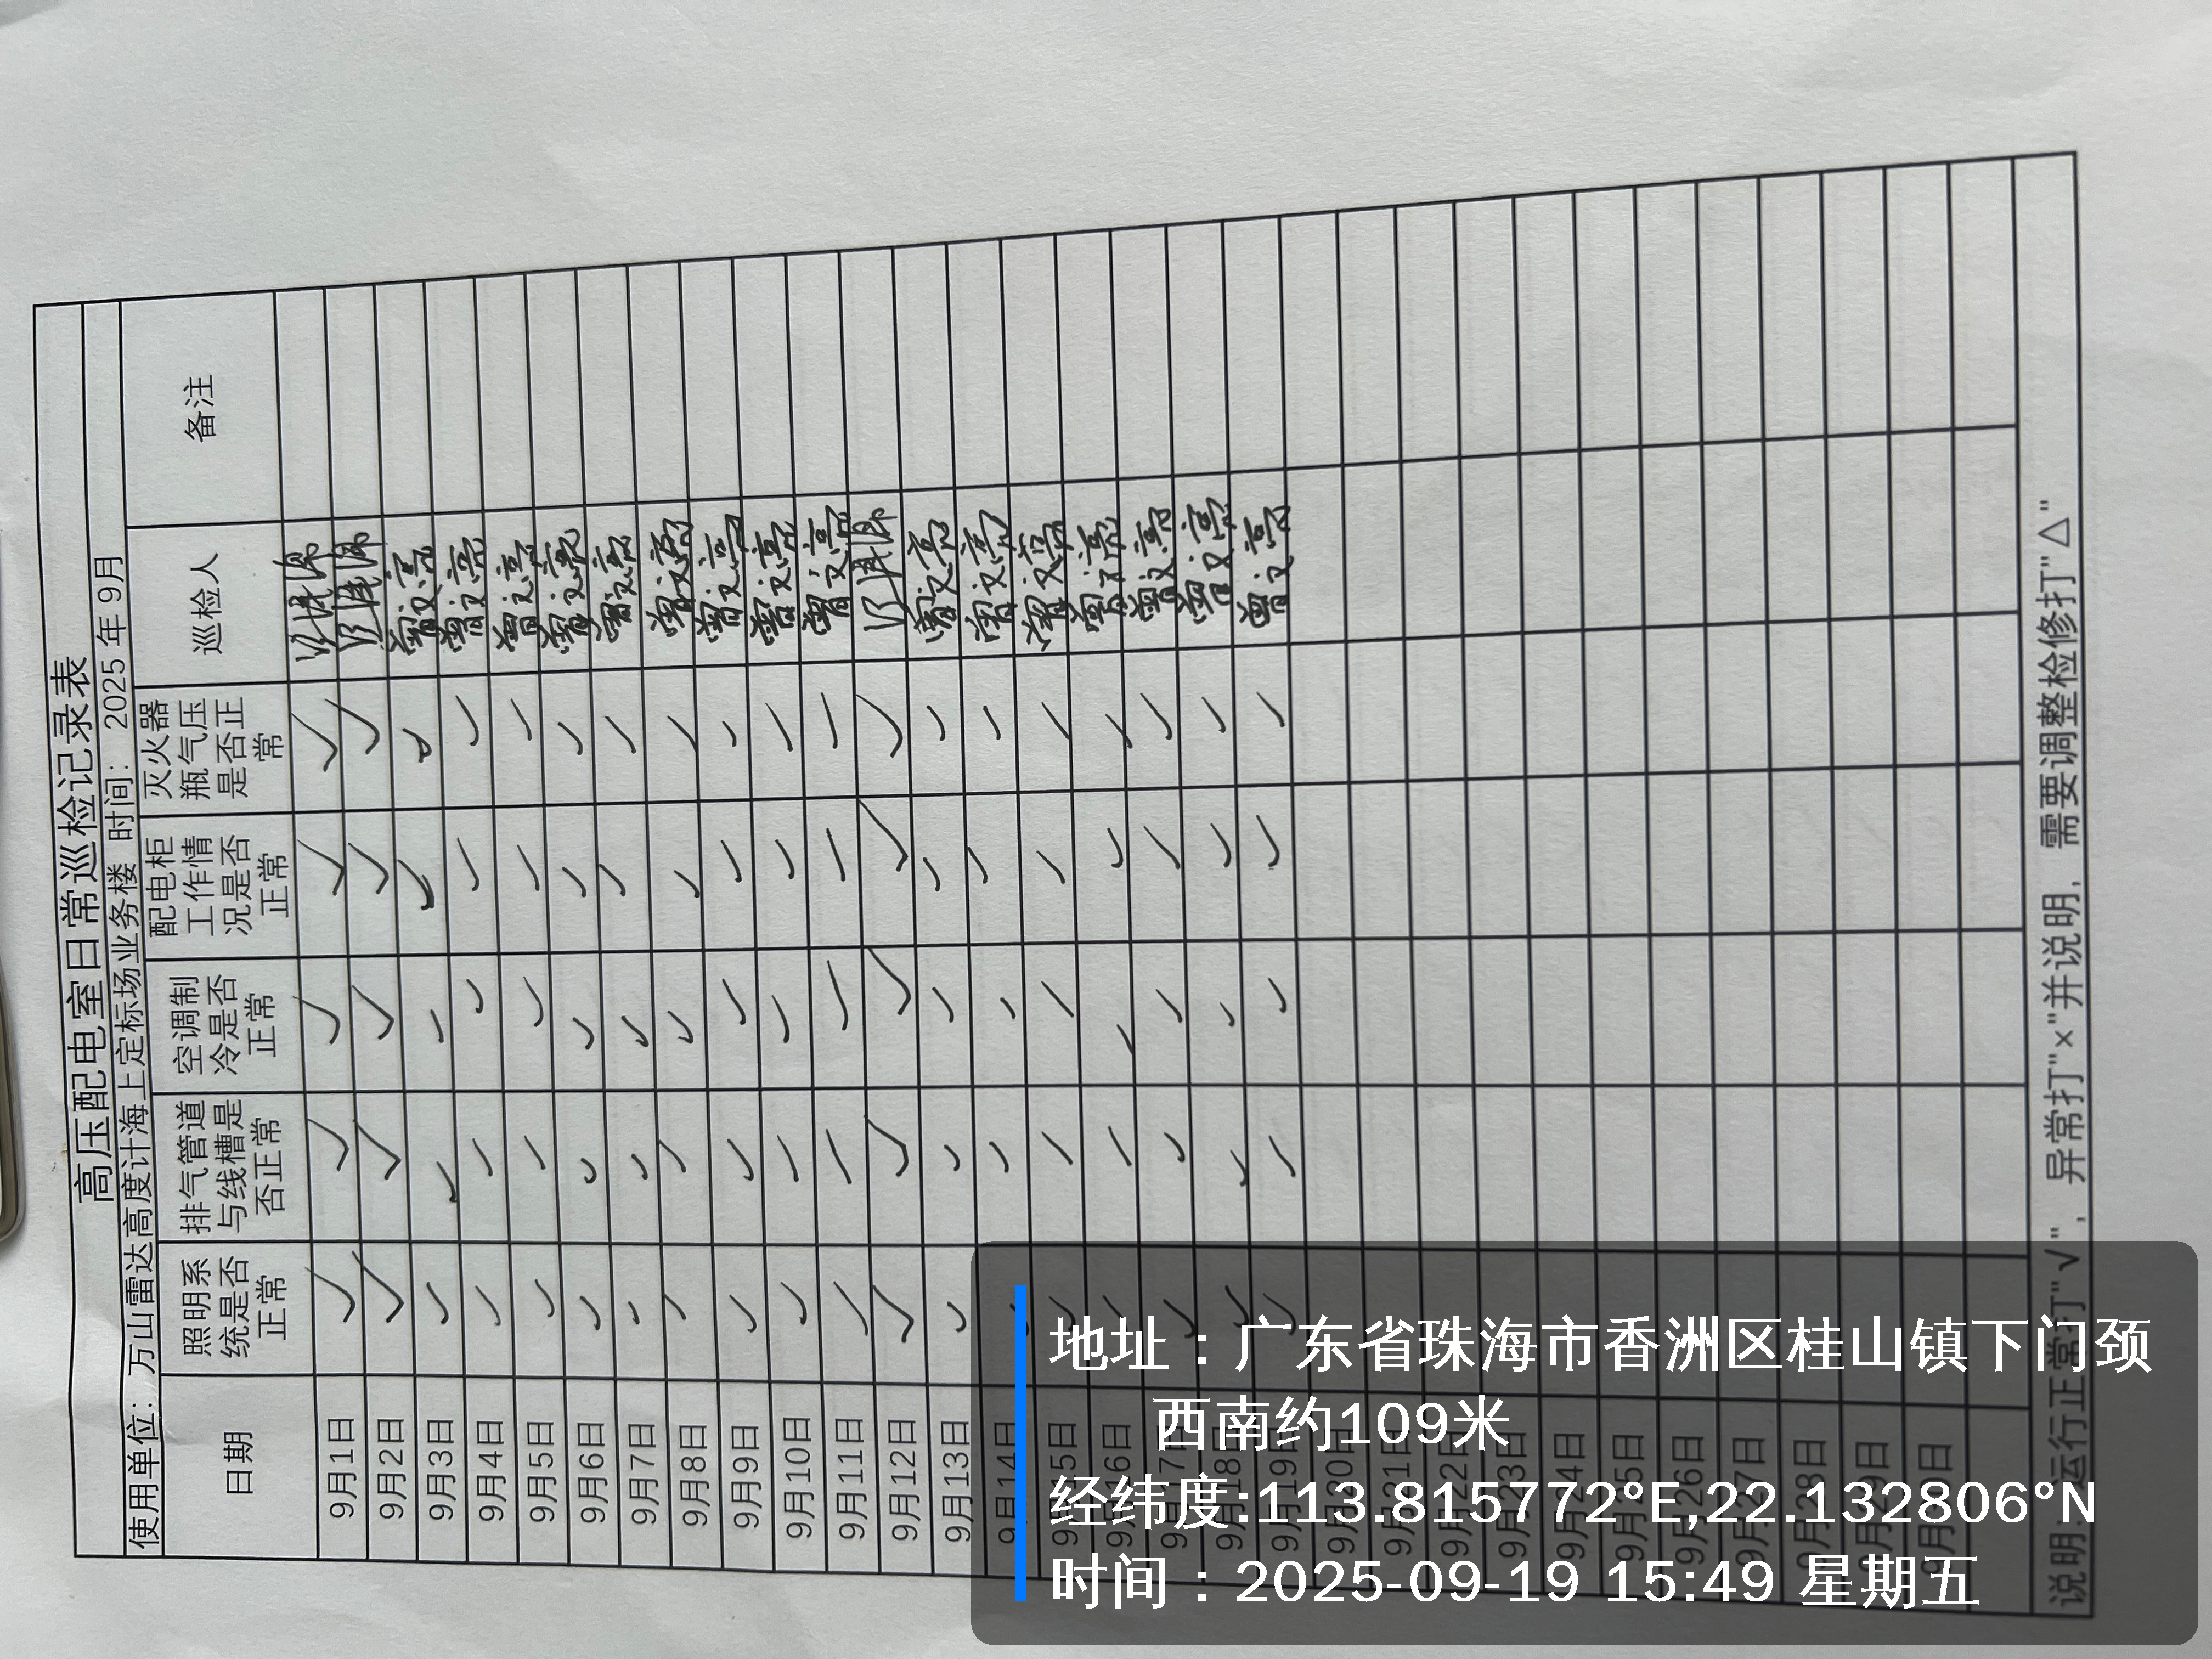 高压配电室日常巡检记录表
使用单位：万山雷达高度计海上定标场业务楼 时间：2025年9月
日期 照明系统是否正常 排气管道与线槽是否正常 空调制冷是否正常 配电柜工作情况是否正常 灭火器瓶气压是否正常 巡检人 备注
9月1日 ✓ ✓ ✓ ✓ ✓
9月2日 ✓ ✓ ✓ ✓ ✓
9月3日 ✓ ✓ ✓ ✓ ✓ 曾文亮
9月4日 ✓ ✓ ✓ ✓ ✓ 曾文亮
9月5日 ✓ ✓ ✓ ✓ ✓ 曾文亮
9月6日 ✓ ✓ ✓ ✓ ✓ 曾文亮
9月7日 ✓ ✓ ✓ ✓ ✓ 曾文亮
9月8日 ✓ ✓ ✓ ✓ ✓ 曾文亮
9月9日 ✓ ✓ ✓ ✓ ✓ 曾文亮
9月10日 ✓ ✓ ✓ ✓ ✓ 曾文亮
9月11日 ✓ ✓ ✓ ✓ ✓ 曾文亮
9月12日 ✓ ✓ ✓ ✓ ✓
9月13日 ✓ ✓ ✓ ✓ ✓ 曾文亮
9月14日 ✓ ✓ ✓ ✓ ✓ 曾文亮
9月15日 ✓ ✓ ✓ ✓ ✓ 曾文亮
9月16日 ✓ ✓ ✓ ✓ ✓ 曾文亮
9月17日 ✓ ✓ ✓ ✓ ✓ 曾文亮
9月18日 ✓ ✓ ✓ ✓ ✓ 曾文亮
9月19日 ✓ ✓ ✓ ✓ ✓ 曾文亮
9月20日
9月21日
9月22日
9月23日
9月24日
9月25日
9月26日
9月27日
9月28日
9月29日
9月30日
说明:运行正常打"√"，异常打"×"并说明，需要调整检修打"△"
地址：广东省珠海市香洲区桂山镇下门颈
西南约109米
经纬度:113.815772°E,22.132806°N
时间：2025-09-19 15:49 星期五